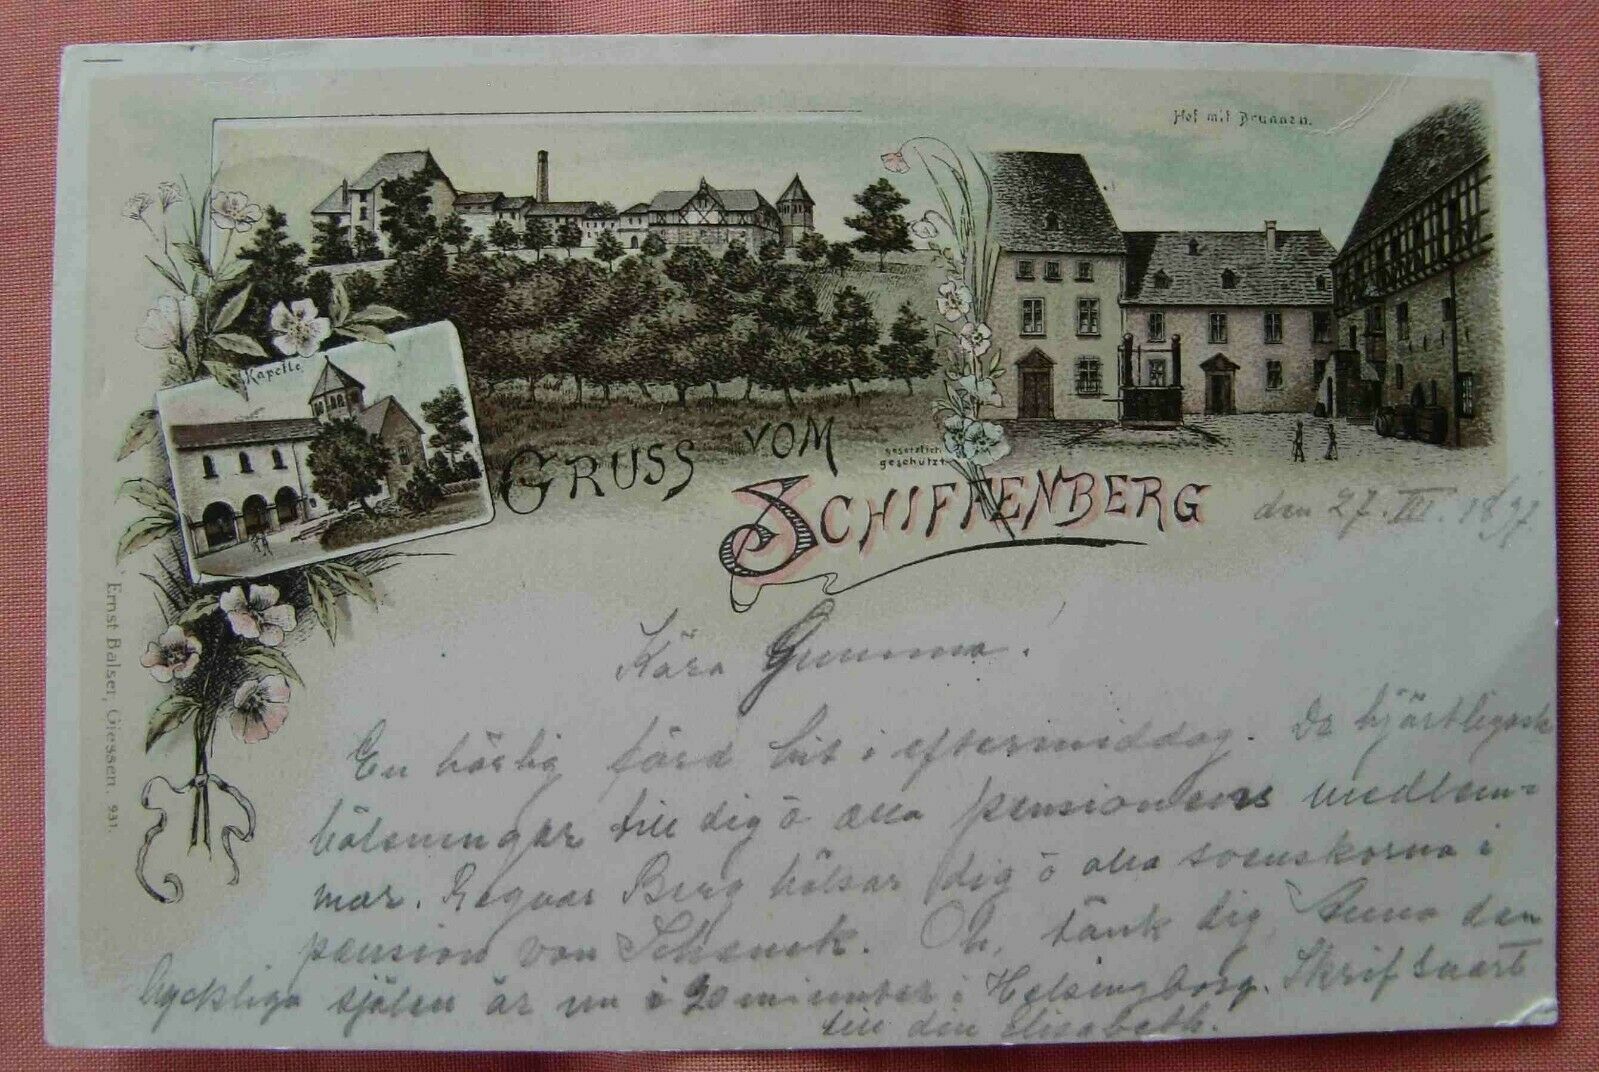 Hof mit Brunnen.
Kapelle
gesetzlich
geschützt
GRUSS VOM
SCHIFFENBERG
den 27. III. 1897
Ernst Balser, Giessen. 931.
Kära Gumma!
En härlig färd hit i eftermiddag. De hjärtligaste
hälsningar till dig ö alla pensionens medlem=
mar. Ragnar Berg hälsar dig ö alla svenskorna i
pension von Schenck. Oh, tänk dig, Anna den
lyckliga själen är nu i 20 minuter i Helsingborg. Skrif snart
till din Elisabeth.